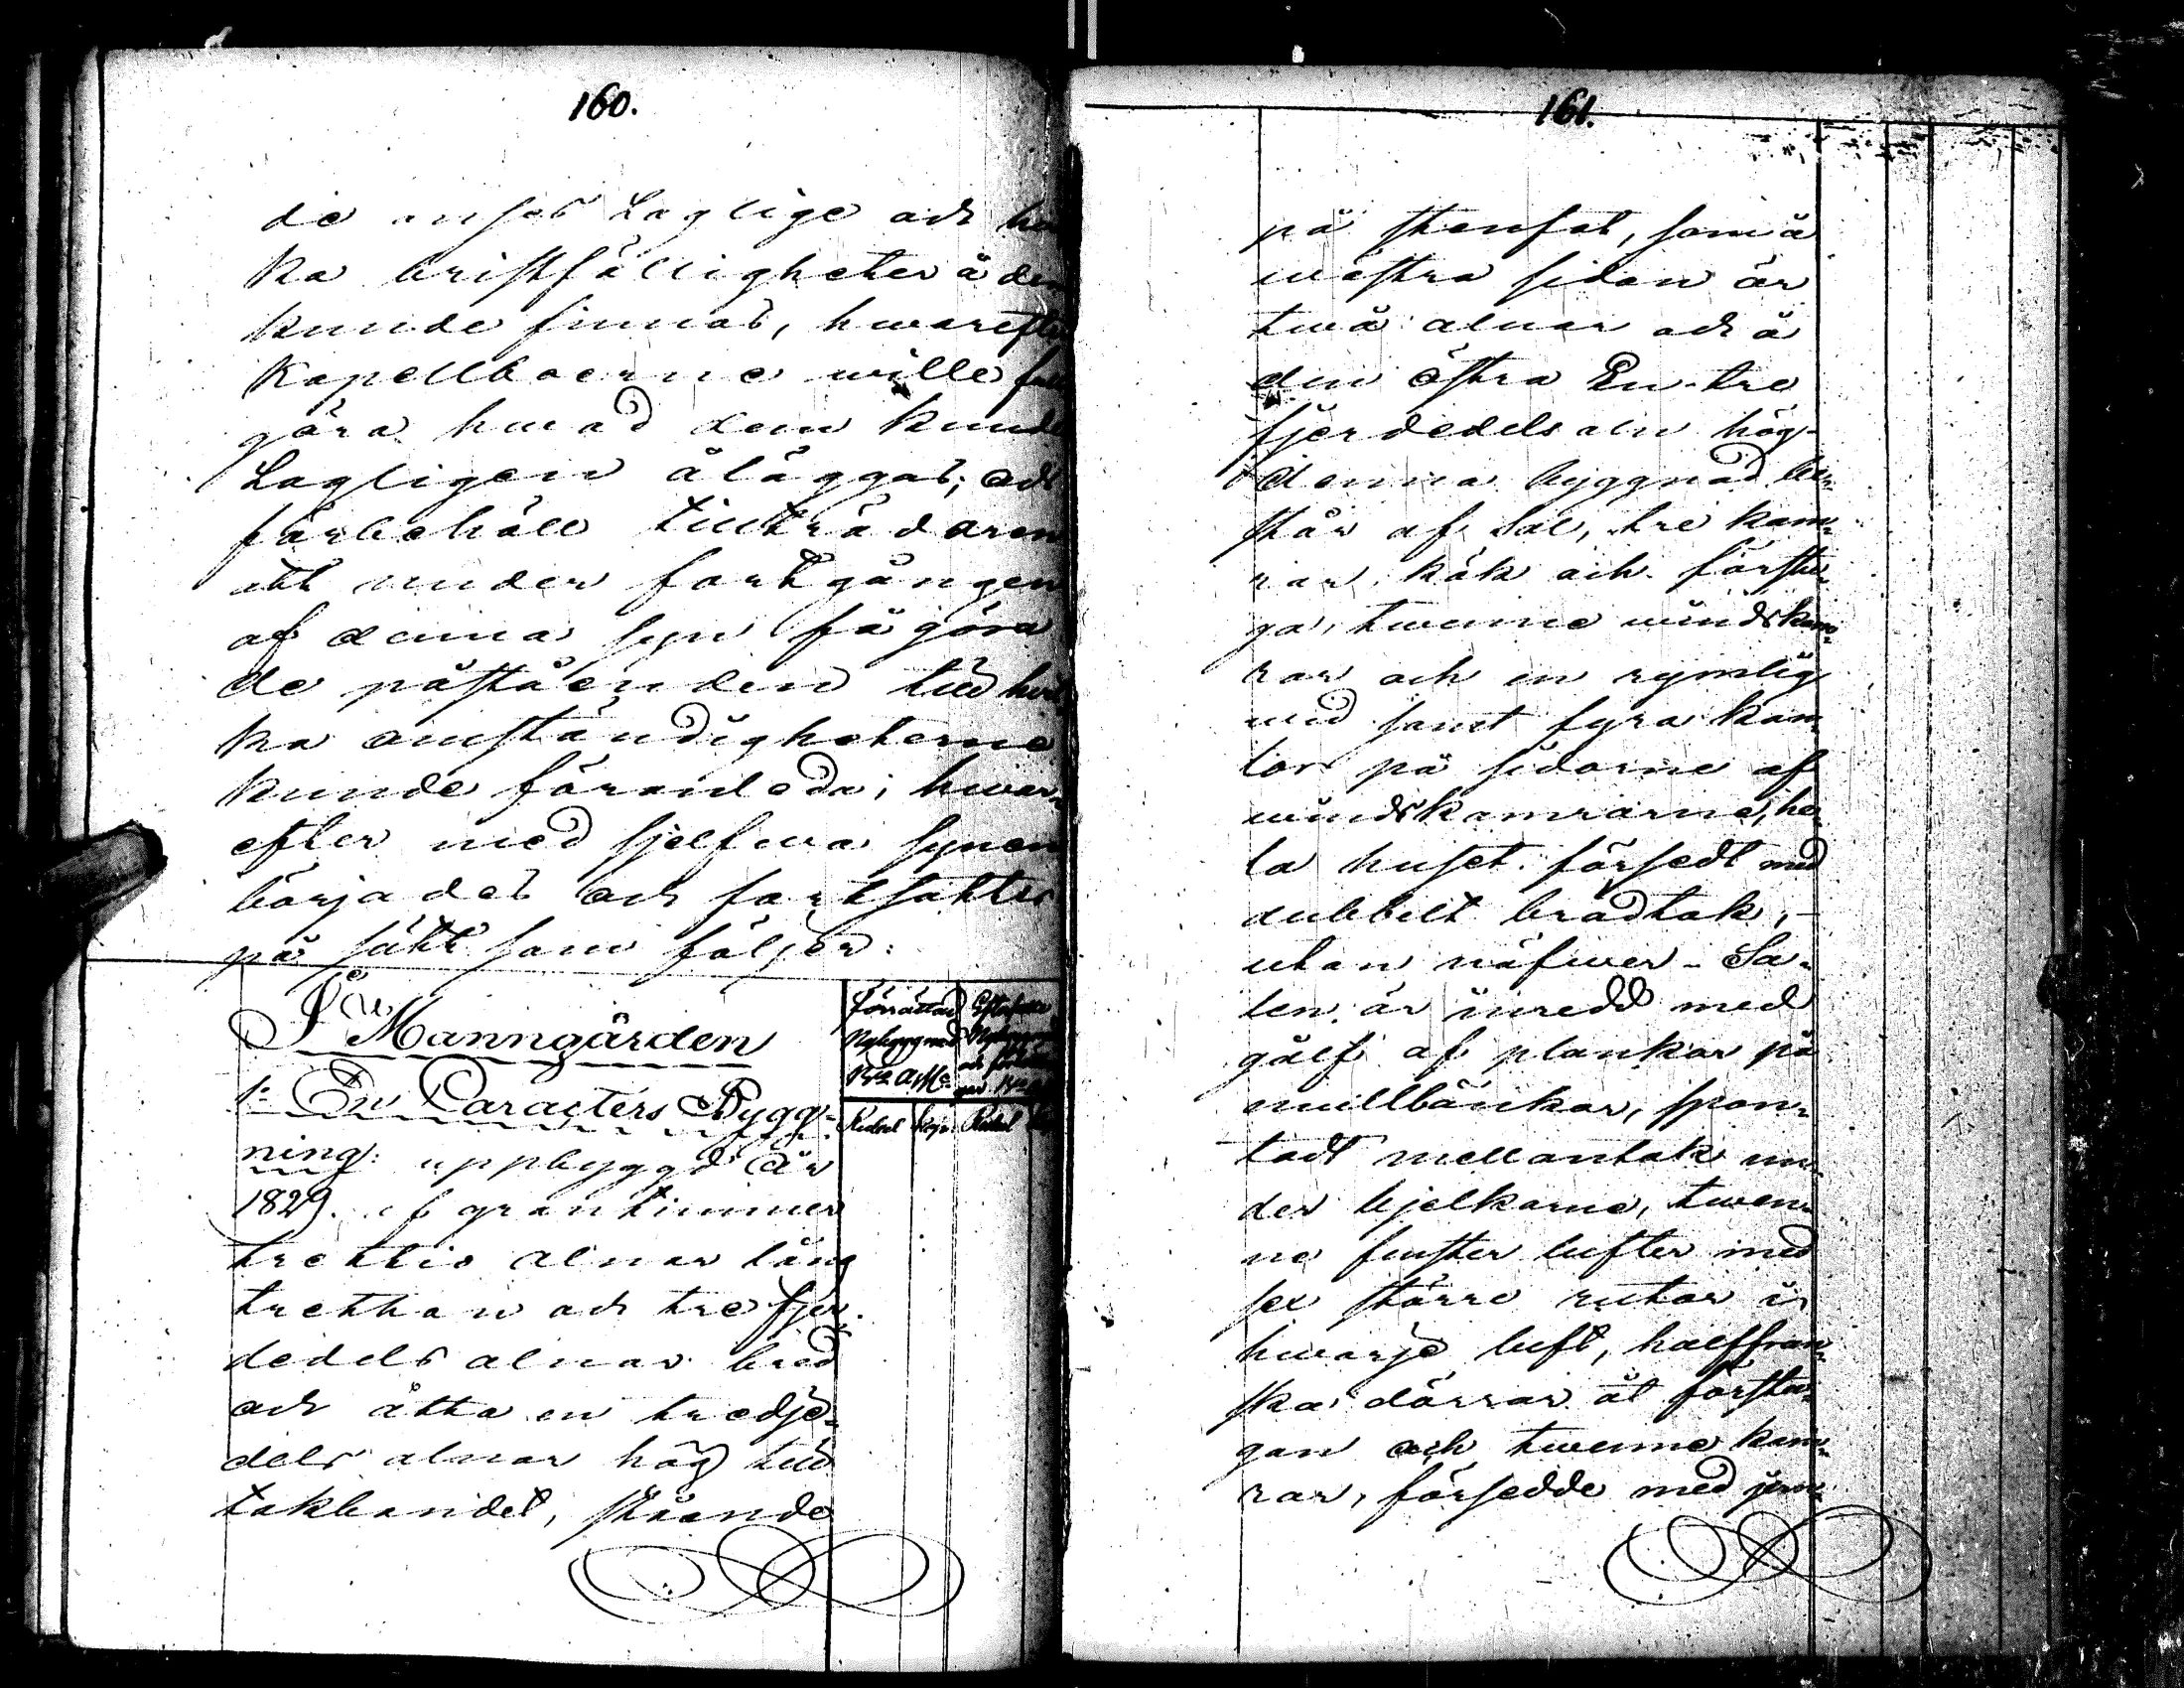 160.
de anses Laglige och
ka bristfälligheter å den
kunde finnas, hwarefter
Kapellboerne wille
göra hwad dem kunde
Lagligen åläggas; och
förbehöll tillträdaren
att under fortgången
af denna syn få göra
de påståenden till hvil
ka omständigheterne
kunde föranleda; hwar-
efter med sjelfwa synen
börjades och fortsattes
på sätt som följer:
I
Manngården
1o En Caracters Bygg-
ning: uppbyggd år
1829. af grantimmer
trettio alnar lång
tretton och tre fjer-
dedels alnar bred
och åtta en tredje-
dels alnar hög till
takbandet, stående
Förrättad
Nybyggnad
Nybyggnad
Riksd Kop: Riksd
161.
på stenfot, som å
westra sidan är
twå alnar och å
den östra En- tre
fjerdedels aln hög-
denna byggnad be-
står af Sal, tre kam-
rar, kök och förstu-
ga, twenne windskam-
rar och en rymlig
wind samt fyra kam-
tor på sidorne af
windskamrarne, he-
la huset försedt med
dubbelt brädtak,-
utan näfwer- Sa-
len är inredd med
golf af plankar på
mullbänkar, spon-
tadt mellantak un-
der bjelkarne, twen-
ne fenster lufter med
sex större rutor i
hwarje luft, halffran-
ska dörrar åt förstu-
gan och twenne kam-
rar, försedde med jern-